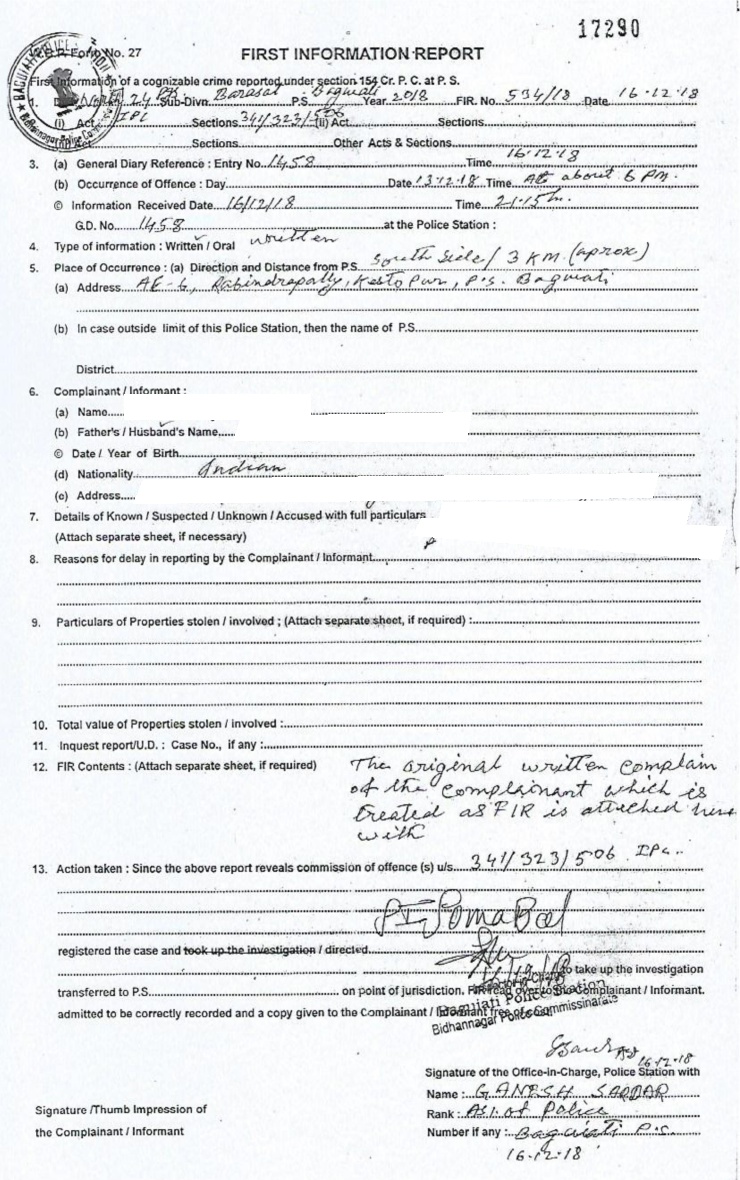 17290
Form No. 27
FIRST INFORMATION REPORT
First Information of a cognizable crime reported under section 154 Cr. P. C. at P. S.
1. 24 Sub-Divn. Barasat P.S. Baguiati Year 2018 FIR. No. 534/18 Date 16.12.18
(i) Act IPC Sections 341/323/506 (ii) Act Sections
Sections Other Acts & Sections
3. (a) General Diary Reference : Entry No. 1458 Time 16.12.18
(b) Occurrence of Offence : Day Date 13.12.18 Time At about 6 PM.
© Information Received Date 16/12/18 Time 21.15 hr.
G.D. No. 1458 at the Police Station :
4. Type of information : Written / Oral written
5. Place of Occurrence : (a) Direction and Distance from P.S. South Side / 3 KM. (aprox)
(a) Address AE-6, Rabindrapally, Kestopur, P.S. Baguiati
(b) In case outside limit of this Police Station, then the name of P.S.
District
6. Complainant / Informant :
(a) Name
(b) Father's / Husband's Name
© Date / Year of Birth
(d) Nationality Indian
(c) Address
7. Details of Known / Suspected / Unknown / Accused with full particulars
(Attach separate sheet, if necessary)
8. Reasons for delay in reporting by the Complainant / Informant
9. Particulars of Properties stolen / involved ; (Attach separate sheet, if required) :
10. Total value of Properties stolen / involved :
11. Inquest report/U.D. : Case No., if any :
12. FIR Contents : (Attach separate sheet, if required) The original written complain
of the complainant which is
treated as FIR is attached here
with
13. Action taken : Since the above report reveals commission of offence (s) u/s 341/323/506 IPC.
PSI Soma Bal
registered the case and took up the investigation / directed
to take up the investigation
transferred to P.S. on point of jurisdiction. FIR read over to the Complainant / Informant.
admitted to be correctly recorded and a copy given to the Complainant / Informant free of cost.
Baguiati Police Station
Bidhannagar Police Commissionarate
16.12.18
Signature of the Office-in-Charge, Police Station with
Name : GANESH SARDAR
Signature /Thumb Impression of
Rank : ASI. of Police
the Complainant / Informant
Number if any : Baguiati P.S.
16.12.18